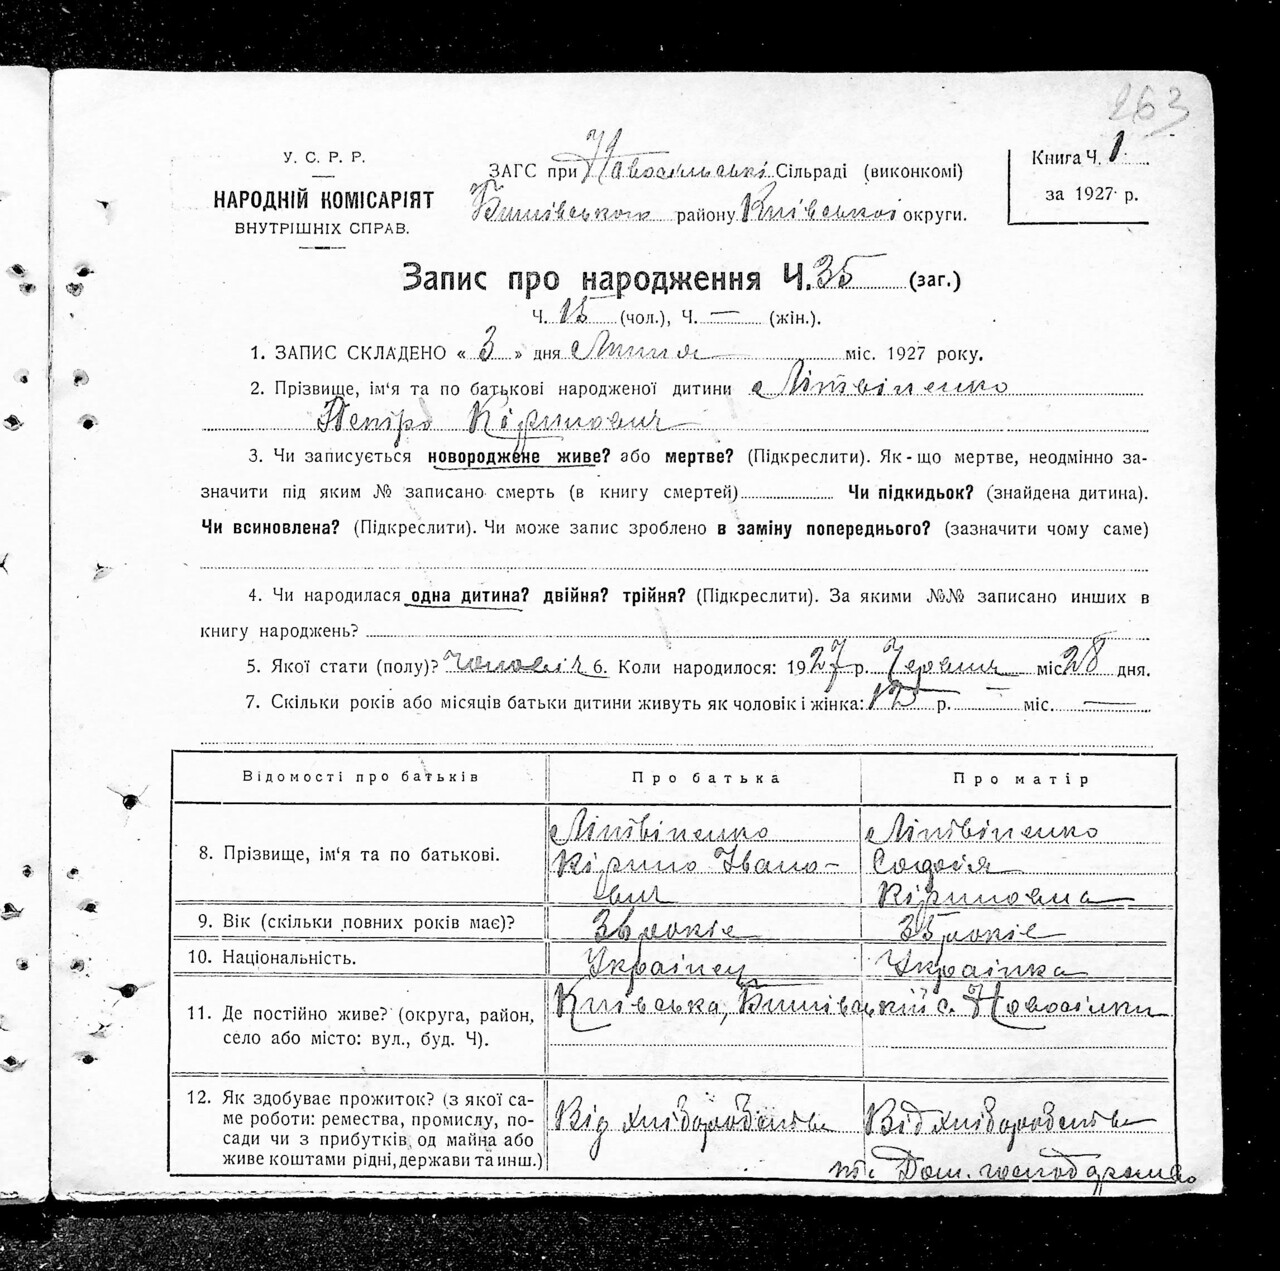 263
У. С. Р. Р.
НАРОДНІЙ КОМІСАРІЯТ
ВНУТРІШНІХ СПРАВ.
ЗАГС при Новосільські Сільраді (виконкомі)
Бишівського району Київської округи.
Книга Ч. 1
за 1927 р.
Запис про народження Ч. 35 (заг.)
Ч. 15 (чол.), Ч. — (жін.).
1. ЗАПИС СКЛАДЕНО « 3 » дня Липня міс. 1927 року.
2. Прізвище, ім'я та по батькові народженої дитини Літвіненко
Петро Кірилович
3. Чи записується новороджене живе? або мертве? (Підкреслити). Як-що мертве, неодмінно за-
значити під яким № записано смерть (в книгу смертей) Чи підкидьок? (знайдена дитина).
Чи всиновлена? (Підкреслити). Чи може запис зроблено в заміну попереднього? (зазначити чому саме)
4. Чи народилася одна дитина? двійня? трійня? (Підкреслити). За якими №№ записано инших в
книгу народжень?
5. Якої стати (полу)? чоловіч 6. Коли народилося: 1927 р. Червня міс. 28 дня.
7. Скільки років або місяців батьки дитини живуть як чоловік і жінка: 15 р. — міс. —
Відомості про батьків Про батька Про матір
8. Прізвище, ім'я та по батькові.
Літвіненко Літвіненко
Кірило Івано- Софія
вич Кіриловна
9. Вік (скільки повних років має)? років 35 років
10. Національність. Українец Українка
11. Де постійно живе? (округа, район, село або місто: вул., буд. Ч).
Київська, Бишівський с. Новосілки
12. Як здобуває прожиток? (з якої са-
ме роботи: ремества, промислу, по-
сади чи з прибутків од майна або
живе коштами рідні, держави та инш.)
Від хліборобства Від хліборобства
та Дом. господарства